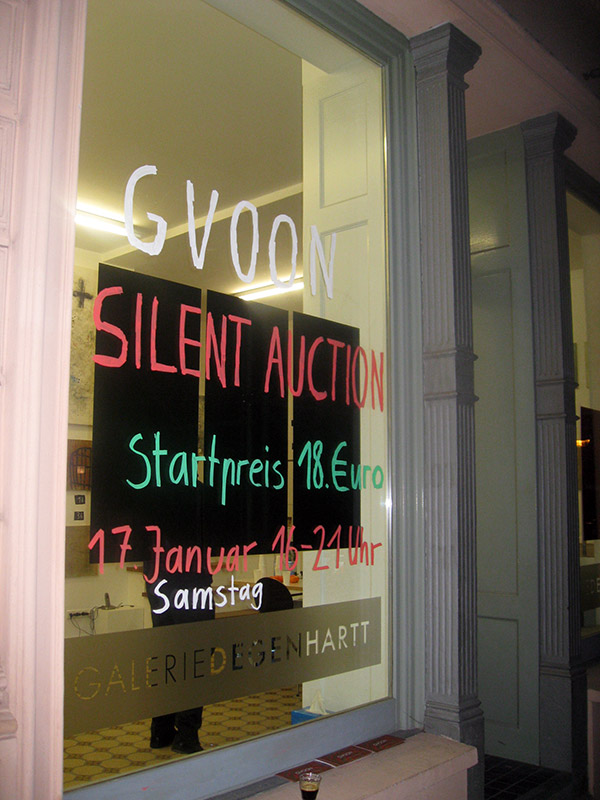 GVOON
SILENT AUCTION
Startpreis 18.Euro
17.Januar 16-21 Uhr
Samstag
GALERIEDEGENHARTT